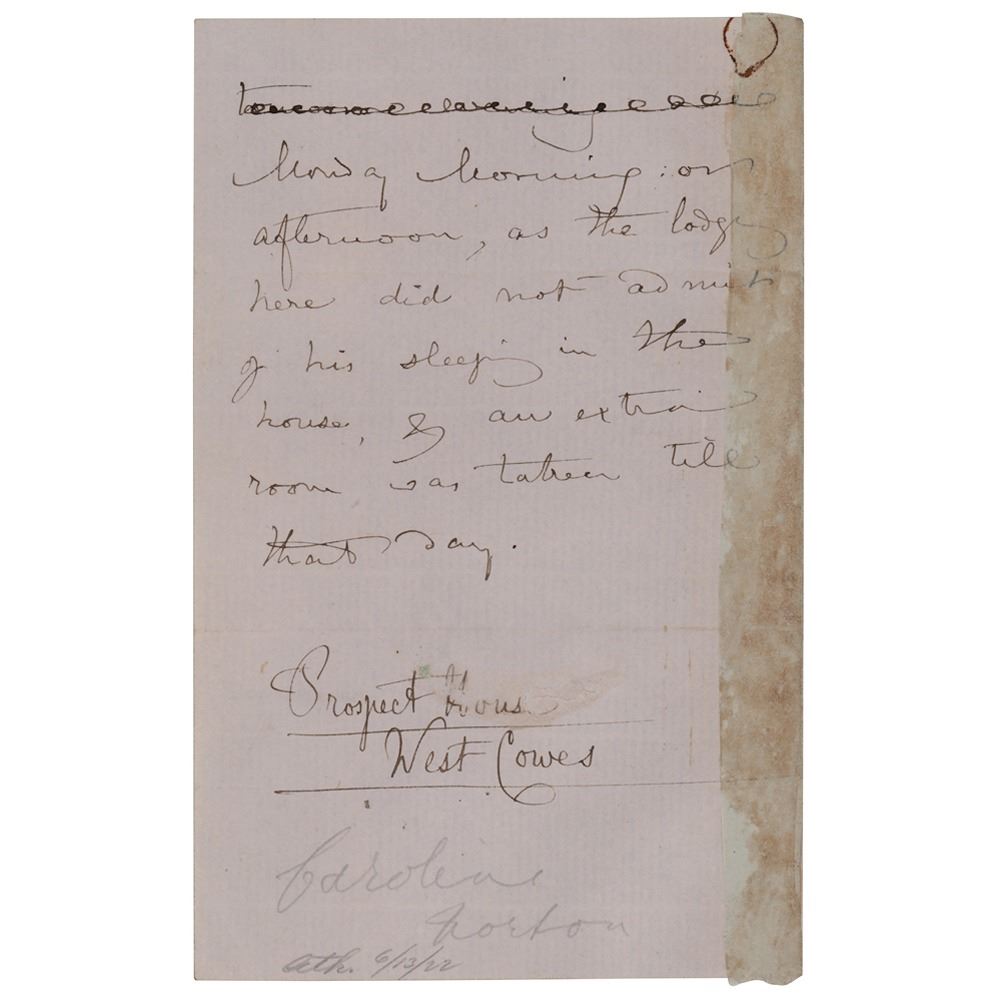 Monday Morning: or
afternoon, as the lodg
here did not admit
of his sleeping in the
house, & an extra
room was taken till
that day.
Prospect House
West Cowes
Caroline
Norton
6/13/22